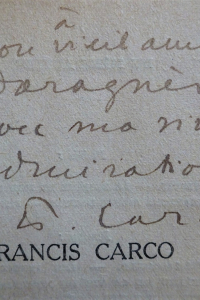 à
on vieil am
Daragnès
vec ma vi
dmiratio
F. Car
RANCIS CARCO